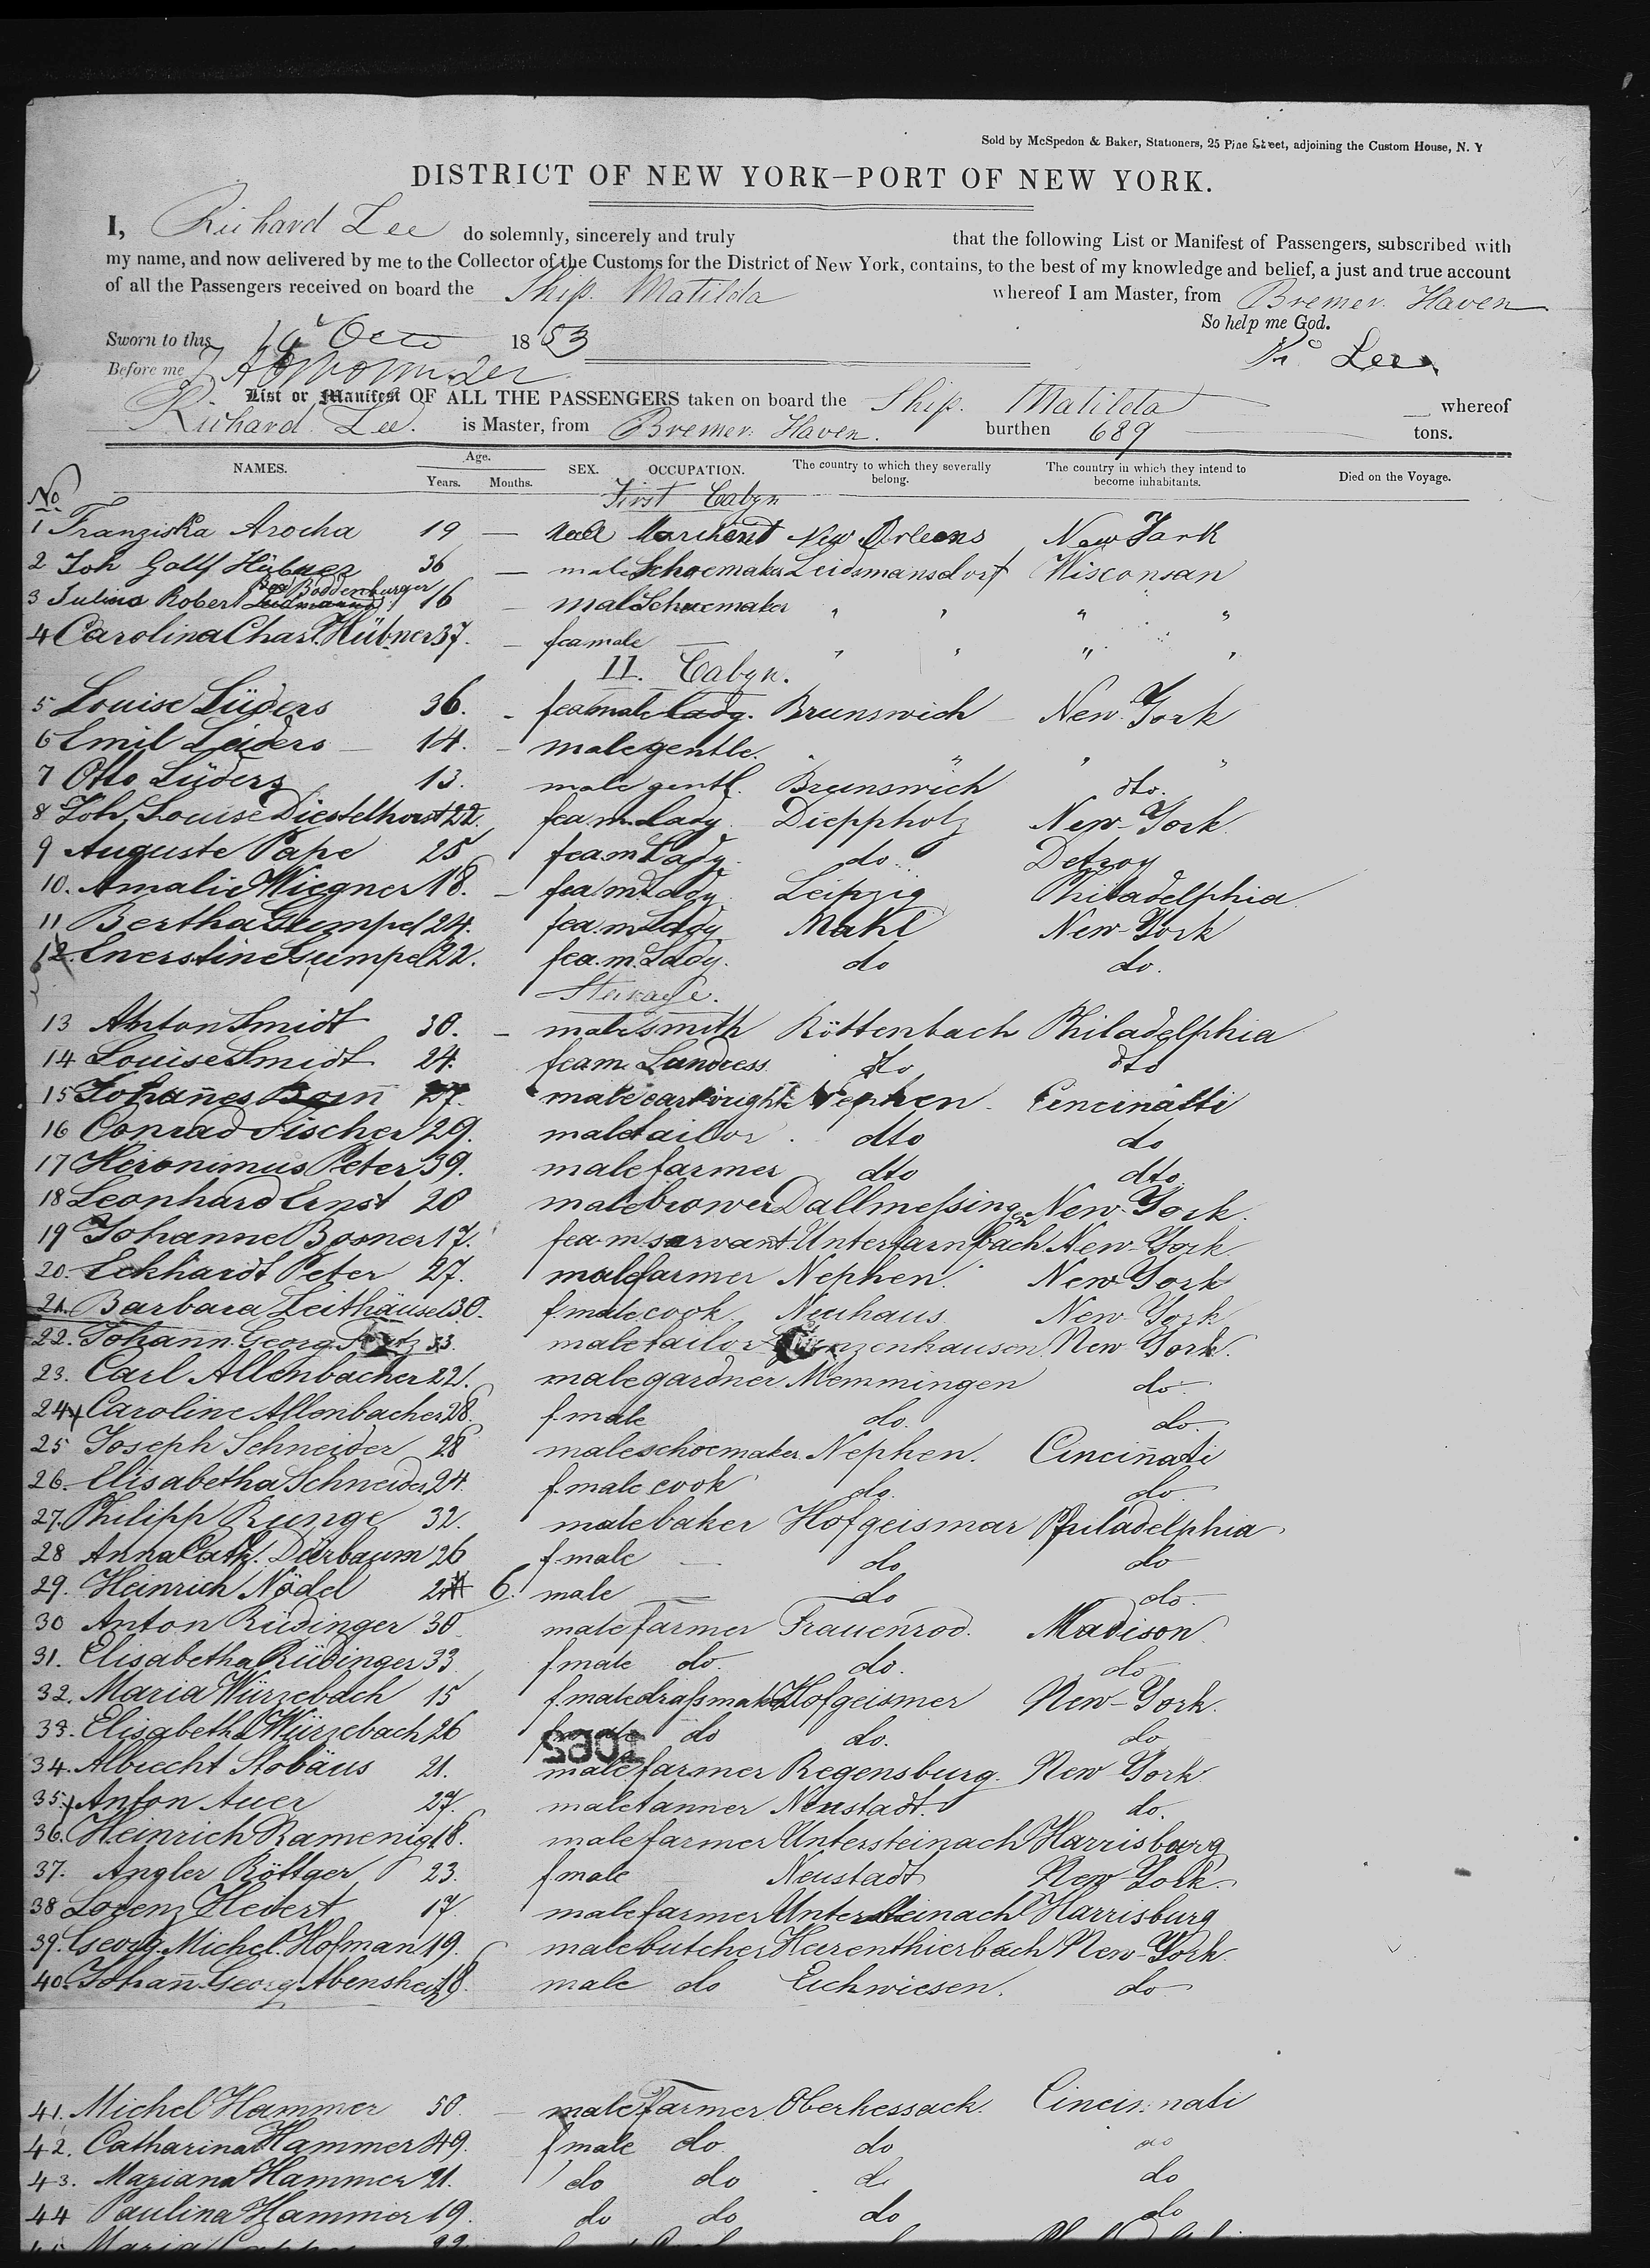 Sold by McSpedon & Baker, Stationers, 25 Pine Street, adjoining the Custom House, N. Y
DISTRICT OF NEW YORK—PORT OF NEW YORK.
I, Richard Lee do solemnly, sincerely and truly that the following List or Manifest of Passengers, subscribed with
my name, and now delivered by me to the Collector of the Customs for the District of New York, contains, to the best of my knowledge and belief, a just and true account
of all the Passengers received on board the Ship. Matilda whereof I am Master, from Bremer Haven
So help me God.
Sworn to this 19 Octo 1853
Before me Lee
List or Manifest OF ALL THE PASSENGERS taken on board the Ship. Matilda whereof
Richard Lee. is Master, from Bremer Haven. burthen 689 tons.
NAMES. Age. Years. Months. SEX. OCCUPATION. The country to which they severally belong. The country in which they intend to become inhabitants. Died on the Voyage.
No
First Cabyn
1 Franziska Arocha 19 — Marchent New Orleans New York
2 Joh Golly Hübner 36 — male Schoemaker Leidsmansdorf Wisconsan
3 Julius Robert Boddenburger 16 — mal Schuemaker " " " "
4 Carolina Charl. Hübner 37. — feamale — " " " "
II. Cabyn.
5 Louise Lüders 36. - feamale lady. Brunswich New-York
6 Emil Lüders — 14. - male gentle. " " " "
7 Otto Lüders 13. male gentl. Brunswich dto.
8 Joh. Louise Diestelhorst 22. feam. Lady. Dieppholz New-York
9 Auguste Pape 25 feam Lady. do. Detroy
10. Amalie Wiegner 18. - fea.m Lady. Leipzig Philadelphia
11 Bertha Gumpel 24. fea.m Lady Makl New-York
12. Enerstine Gumpel 22. fea.m. Lady. do do.
Steirage.
13 Anton Smidt 30. - male smith Röttenbach Philadelphia
14 Louise Smidt 24. feam. Lundress dto dto
15 Johannes Born 27. male cartwright Nephen. Cincinatti
16 Conrad Fischer 29. male tailor. dto do
17 Hieronimus Peter 39. male farmer dto dto
18 Leonhard Ernst 20 male brower Dallmeßingen New-York.
19 Johanne Bosner 17. fea.m. servant Unterfarnbach New-York.
20. Eckhardt Peter 27. male farmer Nephen. New-York
21. Barbara Leithäusel 30. f.male cook Neuhaus New York
22. Johann. Georg 53. male tailor Gunzenhausen New York.
23. Carl Allenbacher 22. male gardner Memmingen do.
24 Caroline Allenbacher 28. f.male do. do.
25 Joseph Schneider 28 male schoemaker Nephen. Cincinnati
26. Elisabetha Schneider 24. f.male cook do. do
27. Philipp Runge 32. male baker Hofgeismar Philadelphia
28 Anna Cath. Dürbaum 26 f.male — do do
29. Heinrich Nödel 24 6. male — do do.
30 Anton Rüdinger 30 male farmer Frauenrod. Madison
31. Elisabetha Rüdinger 33 f.male do. do. do
32. Maria Würzebach 15 f.male draßmaker Hofgeismer New-York.
33. Elisabeth Würzebach 26 do do. do
1062
34. Albrecht Stobäus 21. male farmer Regensburg. New York
35. Anton Auer 27. male tanner Neustadt. do.
36. Heinrich Ramenig 18. male farmer Untersteinach Harrisburg
37. Angler Röttger 23. f.male Neustadt New-York.
38 Lorenz Heitert 17. male farmer Untersteinach Harrisburg
39. Georg. Michel. Hofman 19. male butcher Herenthierbach New-York.
40. Johann Georg Abensheir 18. male do Eichwiesen. do
41. Michel Hammer 50. — male Farmer Oberkessack. Cincinnati
42. Catharina Hammer 49. f.male do. do do
43. Mariana Hammer 21. do do do do
44 Paulina Hammer 19. do do do do
Maria